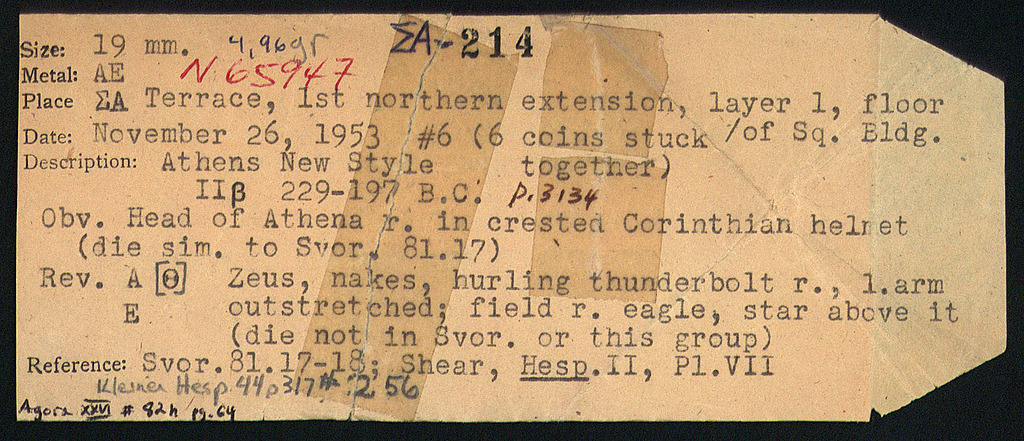 Size: 19 mm. 4,96gr ΣΑ-214
Metal: AE N 65947
Place ΣΑ Terrace, 1st northern extension, layer 1, floor
Date: November 26, 1953 #6 (6 coins stuck /of Sq. Bldg.
Description: Athens New Style together)
IIβ 229-197 B.C. p.3134
Obv. Head of Athena r. in crested Corinthian helmet
(die sim. to Svor. 81.17)
Rev. A [Θ] Zeus, nakes, hurling thunderbolt r., l.arm
E outstretched; field r. eagle, star above it
(die not in Svor. or this group)
Reference: Svor.81.17-18; Shear, Hesp.II, Pl.VII
Kleiner Hesp. 44 p 317 # 256
Agora XXVI # 82h pg. 64